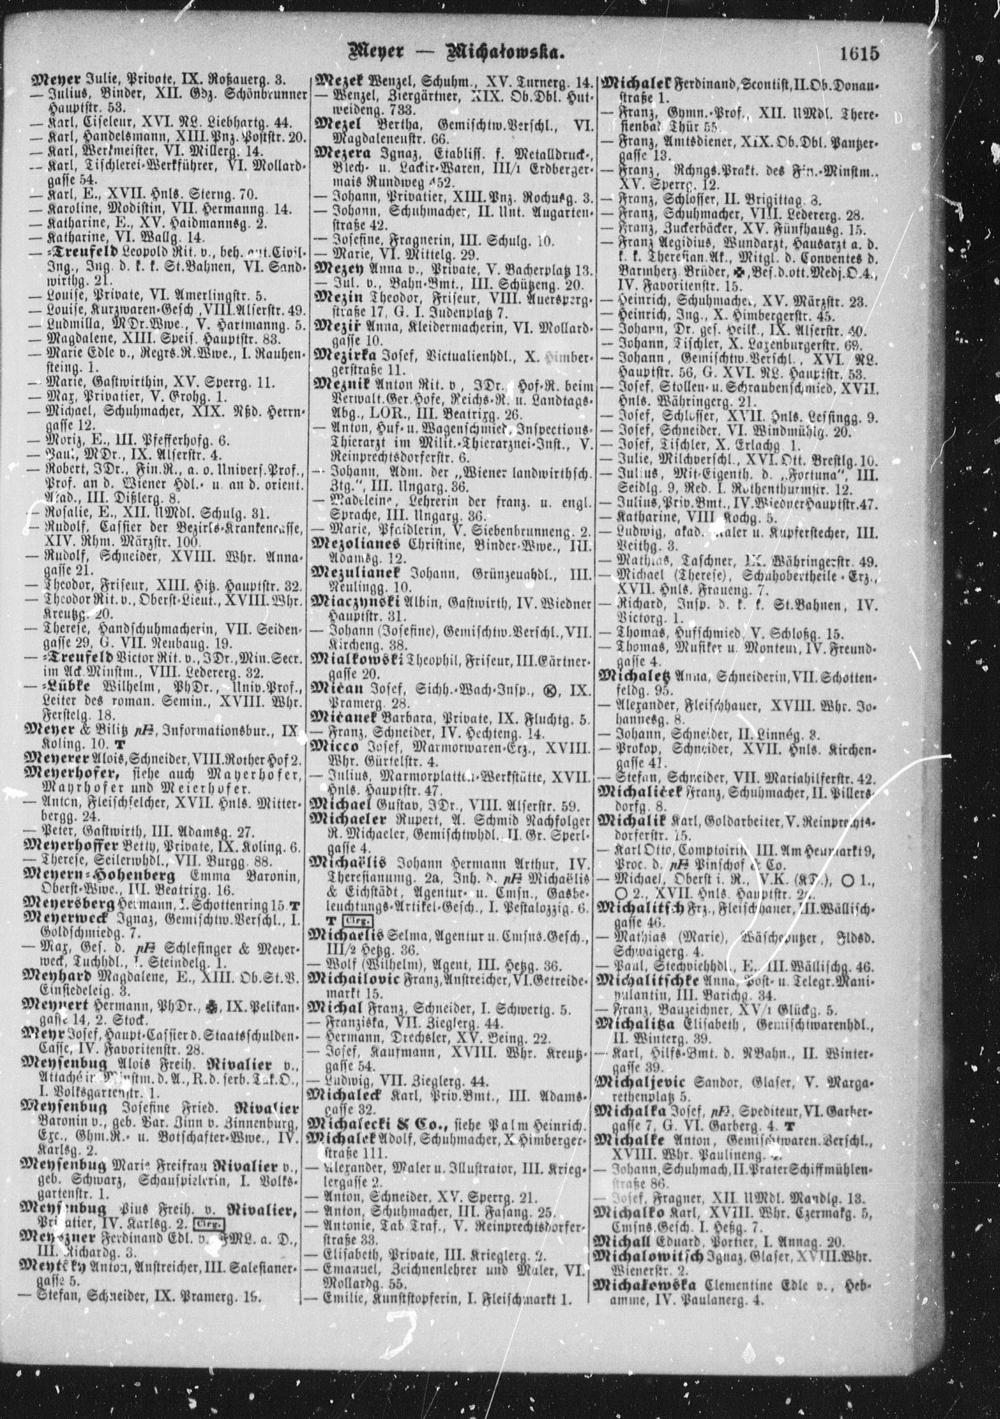 Meyer — Michałowska.
1615
Meyer Julie, Private, IX. Roßauerg. 3.
— Julius, Binder, XII. Gdz. Schönbrunner
Hauptstr. 53.
— Karl, Ciseleur, XVI. NL. Liebhartg. 44.
— Karl, Handelsmann, XIII. Pnz. Poststr. 20.
— Karl, Werkmeister, VI. Millerg. 14.
— Karl, Tischlerei-Werkführer, VI. Mollard-
gasse 54.
— Karl, E., XVII. Hnls. Sterng. 70.
— Karoline, Modistin, VII. Hermanng. 14.
— Katharine, E., XV. Haidmannsg. 2.
— Katharine, VI. Wallg. 14.
— -Treufeld Leopold Rit. v., beh. aut. Civil-
Ing., Ing. d. k. k. St.Bahnen, VI. Sand-
wirthg. 21.
— Louise, Private, VI. Amerlingstr. 5.
— Louise, Kurzwaren-Gesch., VIII. Alserstr. 49.
— Ludmilla, MDr.Wwe., V. Hartmanng. 5.
— Magdalene, XIII. Speis. Hauptstr. 83.
— Marie Edle v., Regrs.R.Wwe., I. Rauhen-
steing. 1.
— Marie, Gastwirthin, XV. Sperrg. 11.
— Max, Privatier, V. Grohg. 1.
— Michael, Schuhmacher, XIX. Nßd. Herrn-
gasse 12.
— Moriz, E., III. Pfefferhofg. 6.
— Paul, MDr., IX. Alserstr. 4.
— Robert, JDr., Fin.R., a. o. Univers.Prof.,
Prof. an d. Wiener Hdl.- u. an d. orient.
Akad., III. Dißlerg. 8.
— Rosalie, E., XII. UMdl. Schulg. 31.
— Rudolf, Cassier der Bezirks-Krankencasse,
XIV. Rhm. Märzstr. 100.
— Rudolf, Schneider, XVIII. Whr. Anna-
gasse 21.
— Theodor, Friseur, XIII. Hitz. Hauptstr. 32.
— Theodor Rit. v., Oberst-Lieut., XVIII. Whr.
Kreutzg. 20.
— Therese, Handschuhmacherin, VII. Seiden-
gasse 29, G. VII. Neubaug. 19.
— -Treufeld Victor Rit. v., JDr., Min.Secr.
im Ack.Minstm., VIII. Ledererg. 32.
— -Lübke Wilhelm, PhDr., Univ.Prof.,
Leiter des roman. Semin., XVIII. Whr.
Ferstelg. 18.
Meyer & Bilitz pP, Informationsbur., IX.
Koling. 10. T
Meyerer Alois, Schneider, VIII. Rother Hof 2.
Meyerhofer, siehe auch Mayerhofer,
Mayrhofer und Meierhofer.
— Anton, Fleischselcher, XVII. Hnls. Mitter-
bergg. 24.
— Peter, Gastwirth, III. Adamsg. 27.
Meyerhoffer Betty, Private, IX. Koling. 6.
— Therese, Seilerwhdl., VII. Burgg. 88.
Meyern-Hohenberg Emma Baronin,
Oberst-Wwe., III. Beatrixg. 16.
Meyersberg Hermann, I. Schottenring 15. T
Meyerweck Ignaz, Gemischtw.Verschl., I.
Goldschmiedg. 7.
— Max, Ges. d. pP Schlesinger & Meyer-
weck, Tuchhdl., I. Steindelg. 1.
Meyhard Magdalene, E., XIII. Ob.St.V.
Einsiedeleig. 3.
Meynert Hermann, PhDr., IX. Pelikan-
gasse 14, 2. Stock.
Meyr Josef, Haupt-Cassier d. Staatsschulden-
Casse, IV. Favoritenstr. 28.
Meysenbug Alois Freih. Rivalier v.,
Attaché im Minstm. d. A., R. d. serb. Tak.O.,
I. Volksgartenstr. 1.
Meysenbug Josefine Fried. Rivalier
Baronin v., geb. Bar. Zinn v. Zinnenburg,
Exc., Ghm.R.- u. Botschafter-Wwe., IV.
Karlsg. 2.
Meysenbug Marie Freifrau Rivalier v.,
geb. Schwarz, Schauspielerin, I. Volks-
gartenstr. 1.
Meysenbug Pius Freih. v. Rivalier,
Privatier, IV. Karlsg. 2. Clrg.
Meyszner Ferdinand Edl. v., FML. a. D.,
III. Richardg. 3.
Meytsky Anton, Anstreicher, III. Salesianer-
gasse 5.
— Stefan, Schneider, IX. Pramerg. 19.
Mezek Wenzel, Schuhm., XV. Turnerg. 14.
— Wenzel, Ziergärtner, XIX. Ob.Dbl. Hut-
weideng. 733.
Mezel Bertha, Gemischtw.Verschl., VI.
Magdalenenstr. 66.
Mezera Ignaz, Etabliss. f. Metalldruck-,
Blech- u. Lackir-Waren, III/1 Erdberger-
mais Rundweg 452.
— Johann, Privatier, XIII. Pnz. Rochusg. 3.
— Johann, Schuhmacher, II. Unt. Augarten-
straße 42.
— Josefine, Fragnerin, III. Schulg. 10.
— Marie, VI. Mittelg. 29.
Mezey Anna v., Private, V. Bacherplatz 13.
— Jul. v., Bahn-Bmt., III. Schützeng. 20.
Mezin Theodor, Friseur, VIII. Auersperg-
straße 17, G. I. Judenplatz 7.
Mezir Anna, Kleidermacherin, VI. Mollard-
gasse 10.
Mezirka Josef, Victualienhdl., X. Himber-
gerstraße 11.
Meznik Anton Rit. v., JDr., Hof-R. beim
Verwalt.Ger.Hofe, Reichs-R. u. Landtags-
Abg., LOR., III. Beatrixg. 26.
— Anton, Huf- u. Wagenschmied, Inspections-
Thierarzt im Milit.-Thierarznei-Inst., V.
Reinprechtsdorferstr. 6.
— Johann, Adm. der „Wiener landwirthsch.
Ztg.", III. Ungarg. 36.
— Madeleine, Lehrerin der franz. u. engl.
Sprache, III. Ungarg. 36.
— Marie, Pfaidlerin, V. Siebenbrunneng. 2.
Mezolianes Christine, Binder-Wwe., III.
Adamsg. 12.
Mezulianek Johann, Grünzeughdl., III.
Reulingg. 10.
Miaczynski Albin, Gastwirth, IV. Wiedner
Hauptstr. 31.
— Johann (Josefine), Gemischtw.Verschl., VII.
Kircheng. 38.
Mialkowski Theophil, Friseur, III. Gärtner-
gasse 20.
Mičan Josef, Sichh.-Wach-Insp., IX.
Pramerg. 28.
Mičanek Barbara, Private, IX. Fluchtg. 5.
— Franz, Schneider, IV. Hechteng. 14.
Micco Josef, Marmorwaren-Erz., XVIII.
Whr. Gürtelstr. 4.
— Julius, Marmorplatten-Werkstätte, XVII.
Hnls. Hauptstr. 47.
Michael Gustav, JDr., VIII. Alserstr. 59.
Michaeler Rupert, A. Schmid Nachfolger
R. Michaeler, Gemischtwhdl. II. Gr. Sperl-
gasse 4.
Michaëlis Johann Hermann Arthur, IV.
Theresianumg. 2a, Inh. d. pP Michaëlis
& Eichstädt, Agentur- u. Cmsn., Gasbe-
leuchtungs-Artikel-Gesch., I. Pestalozzig. 6.
T Clrg.
Michaelis Selma, Agentur u. Cmsns.Gesch.,
III/2 Hetzg. 36.
— Wolf (Wilhelm), Agent, III. Hetzg. 36.
Michailovic Franz, Anstreicher, VI. Getreide-
markt 15.
Michal Franz, Schneider, I. Schwertg. 5.
— Franziska, VII. Zieglerg. 44.
— Hermann, Drechsler, XV. Being. 22.
— Josef, Kaufmann, XVIII. Whr. Kreutz-
gasse 54.
— Ludwig, VII. Zieglerg. 44.
Michaleck Karl, Priv.Bmt., III. Adams-
gasse 32.
Michalecki & Co., siehe Palm Heinrich.
Michalek Adolf, Schuhmacher, X. Himberger-
straße 111.
— Alexander, Maler u. Illustrator, III. Krieg-
lergasse 2.
— Anton, Schneider, XV. Sperrg. 21.
— Anton, Schuhmacher, III. Fasang. 25.
— Antonie, Tab.Traf., V. Reinprechtsdorfer-
straße 33.
— Elisabeth, Private, III. Krieglerg. 2.
— Emanuel, Zeichnenlehrer und Maler, VI.
Mollardg. 55.
— Emilie, Kunststopferin, I. Fleischmarkt 1.
Michalek Ferdinand, Scontist, II. Ob. Donau-
straße 1.
— Franz, Gymn.-Prof., XII. UMdl. There-
sienbad Thür 55.
— Franz, Amtsdiener, XIX. Ob.Dbl. Panzer-
gasse 13.
— Franz, Rchngs.Prakt. des Fin.-Minstm.,
XV. Sperrg. 12.
— Franz, Schlosser, II. Brigittag. 8.
— Franz, Schuhmacher, VIII. Ledererg. 28.
— Franz, Zuckerbäcker, XV. Fünfhausg. 15.
— Franz Aegidius, Wundarzt, Hausarzt a. d.
k. k. Theresian.Ak., Mitgl. d. Conventes d.
Barmherz. Brüder, Bes. d. ott. Medj.O. 4.,
IV. Favoritenstr. 15.
— Heinrich, Schuhmacher, XV. Märzstr. 23.
— Heinrich, Ing., X. Himbergerstr. 45.
— Johann, Dr. ges. Heilk., IX. Alserstr. 40.
— Johann, Tischler, X. Laxenburgerstr. 69.
— Johann, Gemischtw.Verschl., XVI. NL.
Hauptstr. 56, G. XVI. NL. Hauptstr. 53.
— Josef, Stollen- u. Schraubenschmied, XVII.
Hnls. Währingerg. 21.
— Josef, Schlosser, XVII. Hnls. Lessingg. 9.
— Josef, Schneider, VI. Windmühlg. 20.
— Josef, Tischler, X. Erlachg. 1.
— Julie, Milchverschl., XVI. Ott. Brestlg. 10.
— Julius, Mit-Eigenth. d. „Fortuna", III.
Seidlg. 9, Red. I. Rothenthurmstr. 12.
— Julius, Priv.Bmt., IV. Wiedner Hauptstr. 47.
— Katharine, VIII. Kochg. 5.
— Ludwig, akad. Maler u. Kupferstecher, III.
Veithg. 3.
— Mathias, Taschner, IX. Währingerstr. 49.
— Michael (Therese), Schuhobertheile-Erz.,
XVII. Hnls. Fraueng. 7.
— Richard, Insp. d. k. k. St.Bahnen, IV.
Victorg. 1.
— Thomas, Hufschmied, V. Schloßg. 15.
— Thomas, Musiker u. Monteur, IV. Freund-
gasse 4.
Michaletz Anna, Schneiderin, VII. Schotten-
feldg. 95.
— Alexander, Fleischhauer, XVIII. Whr. Jo-
hannesg. 8.
— Johann, Schneider, II. Linnég. 8.
— Prokop, Schneider, XVII. Hnls. Kirchen-
gasse 41.
— Stefan, Schneider, VII. Mariahilferstr. 42.
Michaliček Franz, Schuhmacher, II. Pillers-
dorfg. 8.
Michalik Karl, Goldarbeiter, V. Reinprechts-
dorferstr. 15.
— Karl Otto, Comptoirist, III. Am Heumarkt 9,
Proc. d. pP Pinschof & Co.
— Michael, Oberst i. R., V.K. (KD.), O 1.,
O 2., XVII. Hnls. Hauptstr.
Michalitsch Frz., Fleischhauer, III. Wällisch-
gasse 46.
— Mathias (Marie), Wäscheputzer, Fldsd.
Schwaigerg. 4.
— Paul, Stechviehhdl., E., III. Wällischg. 46.
Michalitschke Anna, Post- u. Telegr.Mani-
pulantin, III. Barichg. 34.
— Franz, Bauzeichner, XV/1 Glückg. 5.
Michalitza Elisabeth, Gemischtwarenhdl.,
II. Winterg. 39.
— Karl, Hilfs-Bmt. d. NBahn., II. Winter-
gasse 39.
Michaljevic Sandor, Glaser, V. Marga-
rethenplatz 5.
Michalka Josef, pP, Spediteur, VI. Garber-
gasse 7, G. VI. Garberg. 4. T
Michalke Anton, Gemischtwaren.Verschl.,
XVIII. Whr. Paulineng.
— Johann, Schuhmach., II. Prater Schiffmühlen-
straße 86.
— Josef, Fragner, XII. UMdl. Mandlg. 13.
Michalko Karl, XVIII. Whr. Czermakg. 5,
Cmsns.Gesch. I. Hetzg. 7.
Michall Eduard, Portier, I. Annag. 20.
Michalowitsch Ignaz, Glaser, XVIII. Whr.
Wienerstr. 2.
Michałowska Clementine Edle v., Heb-
amme, IV. Paulanerg. 4.